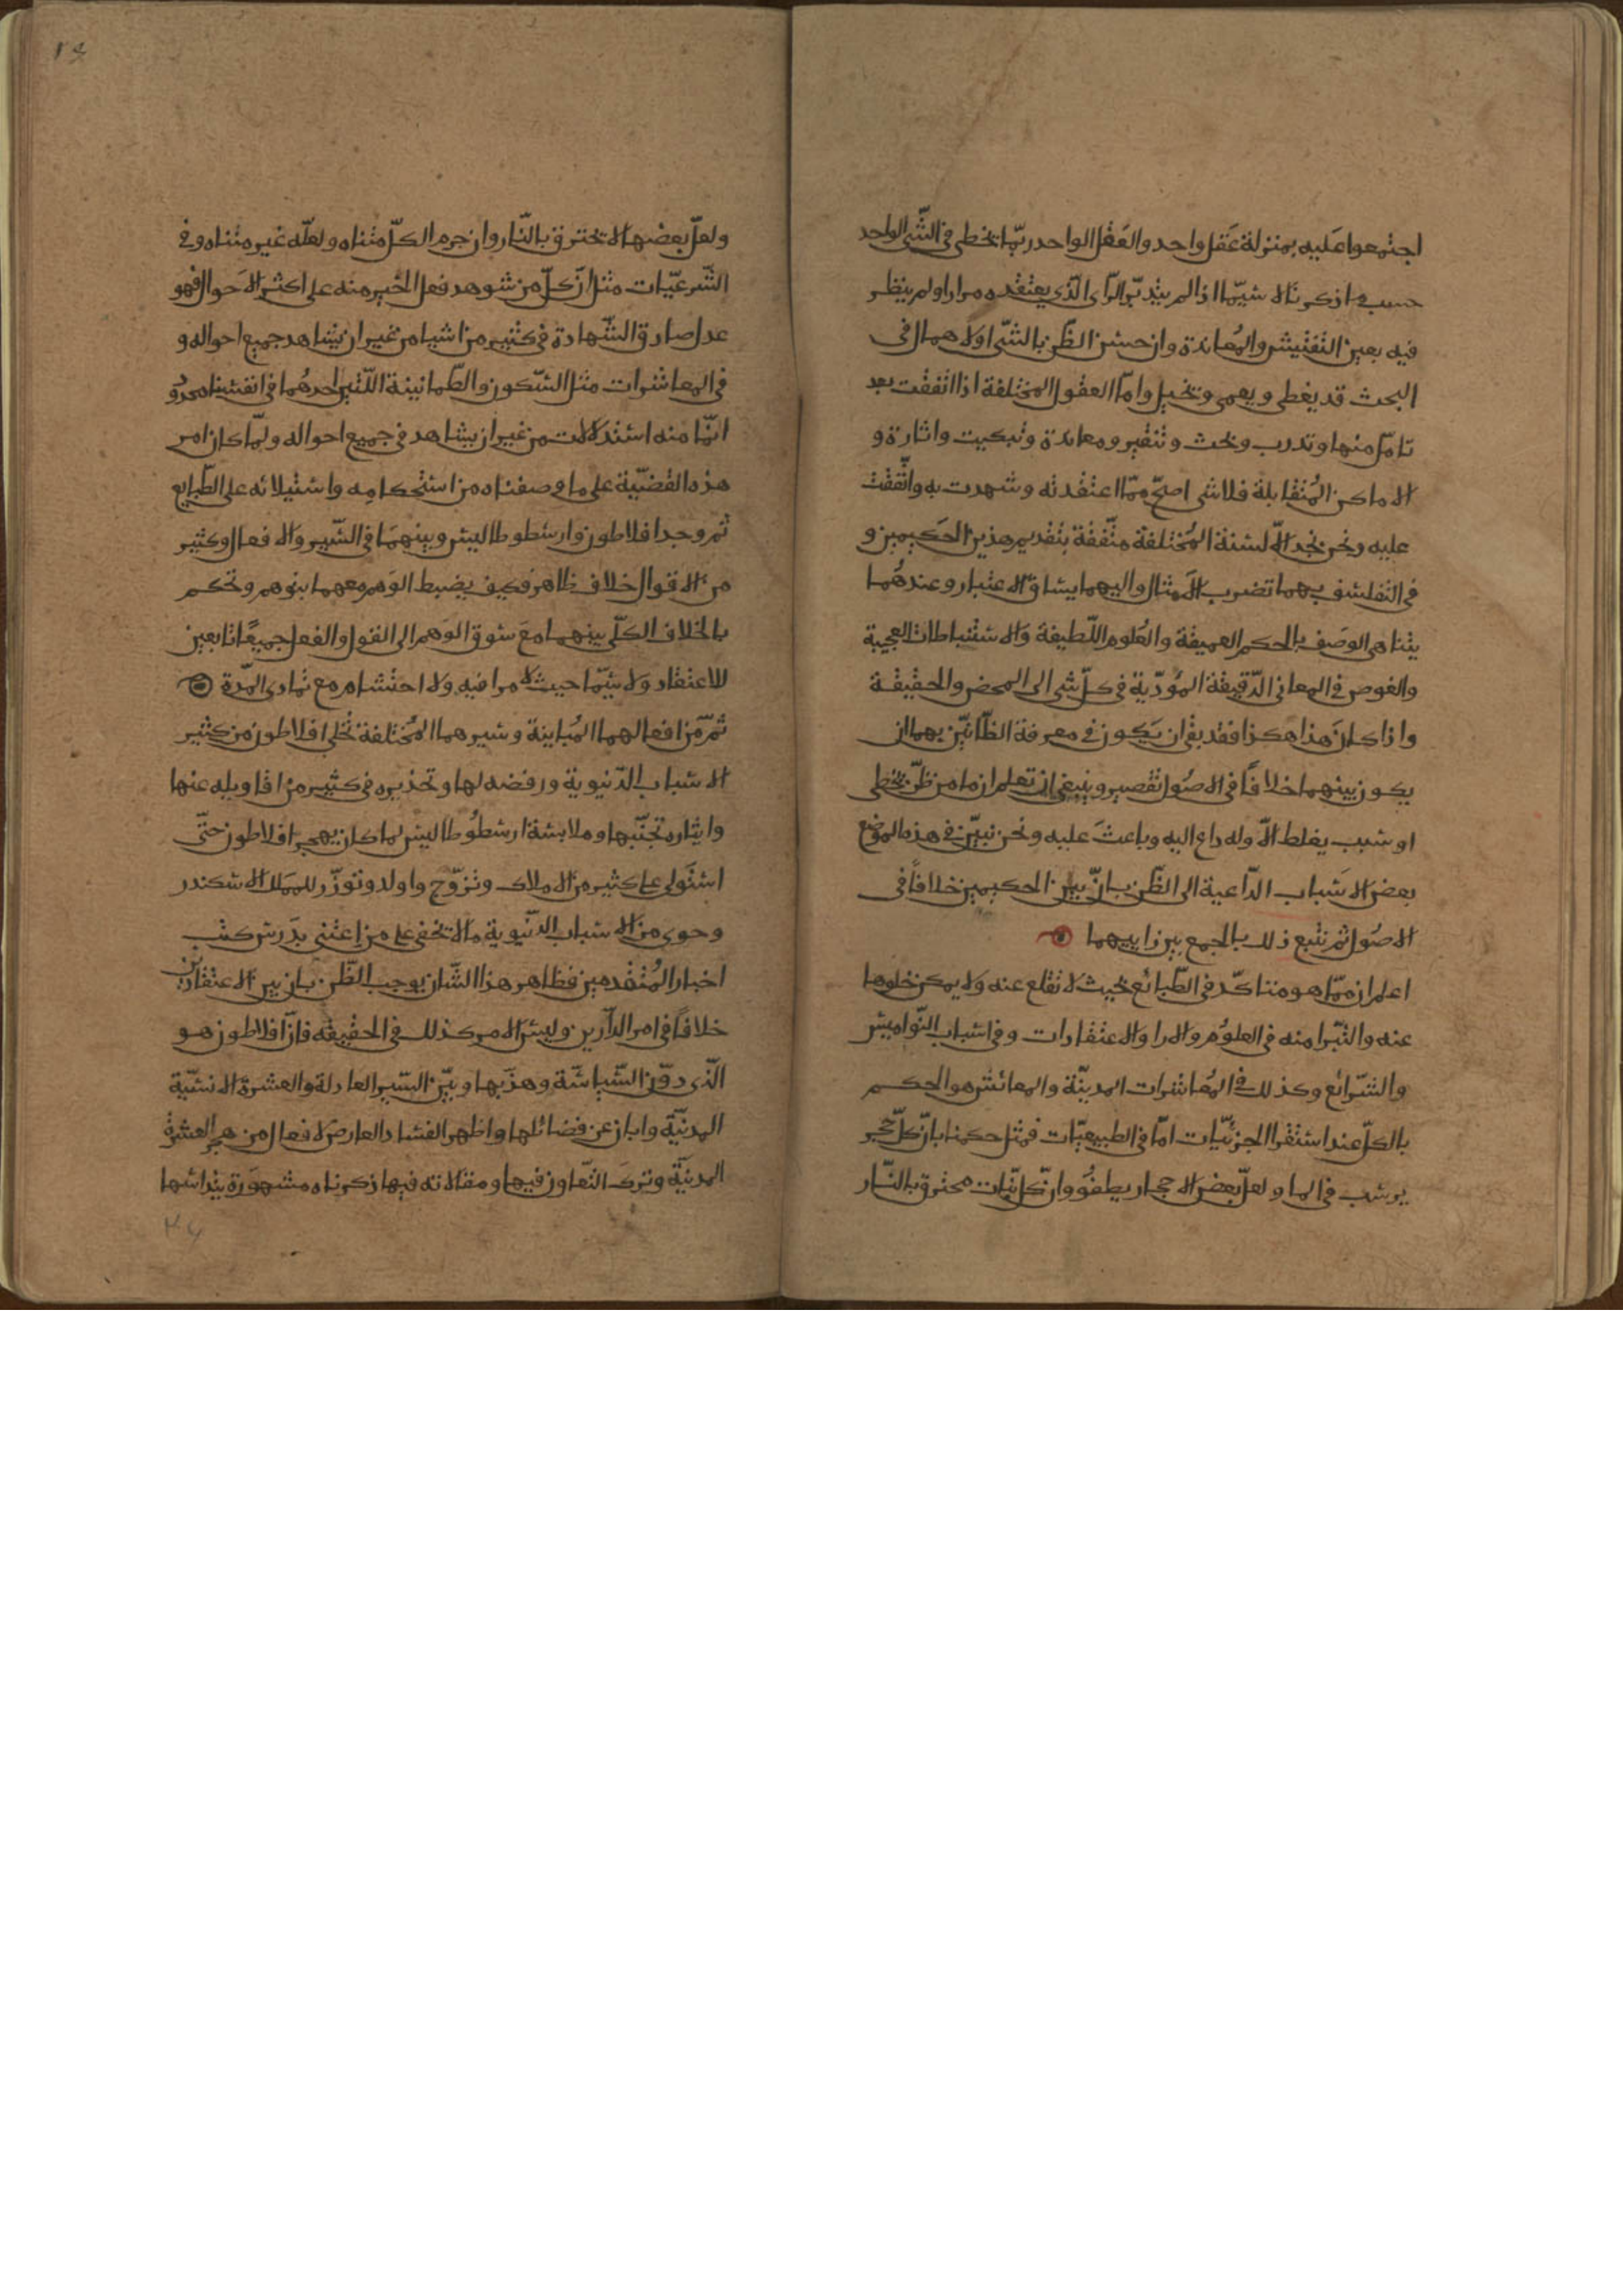 اجتمعوا عليه بمنزلة عقل واحد والعقل الواحد ربّما يخطى فى الشّى الواحد
حسب ما ذكرنا لا سيّما اذا لم يتدبّر الرّاى الّذى يعتقده مرارا ولم ينظر
فيه بعين التفتيش والمُعاندة وان حسن الظّن بالشّى او الاهمال فى
البحث قد يغطى ويعمى ويخيل وامّا العقول المختلفة اذا اتفقت بعد
تامّل منها وتدرب وبحث وتنقير ومعاندة وتبكيت واثارة و
الاماكن المُتقابلة فلا شى اصحّ ممّا اعتقدته وشهدت به واتّفقت
عليه ونحن نجد الالسنة المُختلفة متّفقة بتقديم هذين الحَكيمين و
فى التفلسف بهما تضرب الامثال واليهما يساق الاعتبار وعندهُما
يتناهى الوصَف بالحكم العميقة والعُلوم اللّطيفة والاستنباطات العجيبة
والغوص فى المعانى الدّقيقة المُؤدّية فى كلّ شى الى المحض والحقيقة
واذا كان هذا هكذا فقد بقى ان يَكون فى معرفة الظّانيّن بهما ان
يكون بينهما خلافًا فى الاصُول تقصير وينبغى ان تعلم ان ما من ظنّ يخطى
او سبب يغلط الاّ وله داع اليه وباعثَ عليه ونحن نبيّن فى هذه الموَضع
بعض الاسَباب الدّاعية الى الظّن بانّ بين الحكيمين خلافاً فى
الاصُول ثم نتبع ذلك بالجمع بين رايييهما
اعلم ان ممّا هو متاكّد فى الطّبائع بحيث لا تقلع عنه ولا يمكن خلوها
عنه والتّبرا منه فى العلوُم والارا والاعتقادات وفى اسباب النّواميس
والشّرائع وكذلك فى المُعاشرات المدنيّة والمعائش هو الحكم
بالكلّ عند استقرا الجزئيّات امّا فى الطبيعيّات فمثل حكمنا بانّ كلّ حجر
يرسب فى الما ولعلّ بعض الاحجار يطفُو وانّ كل نبات محترق بالنّار
ولعلّ بعضها لا تحترق بالنّار وان جرم الكلّ متناه ولعلّه غير متناه وفى
الشّرعيّات مثل انّ كلّ من شوهد فعل الخير منه على اكثر الاحَوال فهو
عدل صادق الشّهادة فى كثير من اشيا من غير ان يشاهد جميع احواله و
فى المعاشرات مثل السّكون والطّمانينة اللّتين احدهُما فى انفسنا محدوُد
انّما منه استدلالات من غير ان يشاهد فى جميع احواله ولمّا كان امر
هذه القضيّة على ما وصفناه من استحكامِه واستيلائه على الطّبايع
ثم وجد افلاطون وارسطوطاليس وبينهمَا فى السّير والافعال وكثير
من الاقوال خلاف ظاهر فكيف يضبط الوَهم معهما بتوهم وتحكم
بالخلاف الكلّى بينهما معَ سوق الوَهم الى القول والفعل جميعًا تابعين
للاعتقاد ولا سيّما حيث لا مرا فيه ولا احتشام مع تمادى المدّة
ثمّ من افعالهما المُباينة وسيرهما المُختلفة تُخلى افلاطون من كثير
الاسباب الدّنيوية ورفضه لها وتحذيره فى كثير من اقاويله عنها
وايثاره تجنّبها وملابسة ارسطُوطاليس لما كان يهجر افلاطون حتّى
استَولى على كثير من الاملاك وتزوّج واولد وتوزّر للمَلك الاسكندر
وحوى من الاسباب الدنّيوية ما لا تخفى على من اعتنى بدَرس كتب
اخبار المُتقدمين فظاهر هذا الشّان يوجب الظّن بان بين الاعتقادين
خلافاً فى امر الدّارين وليس الامر كذلك فى الحقيقه فانّ افلاطون هو
الّذى دوّن السّياسّة وهذّبها وبيّن السّير العادلة والعشرة الانسيّة
المدنيّة وابان عن فضائلها واظهر الفساد العارض لافعال من هجر العشرة
المدنيّة وترك التّعاون فيها ومقالاته فيها ذكرناه مشهوَرة يتدارسها